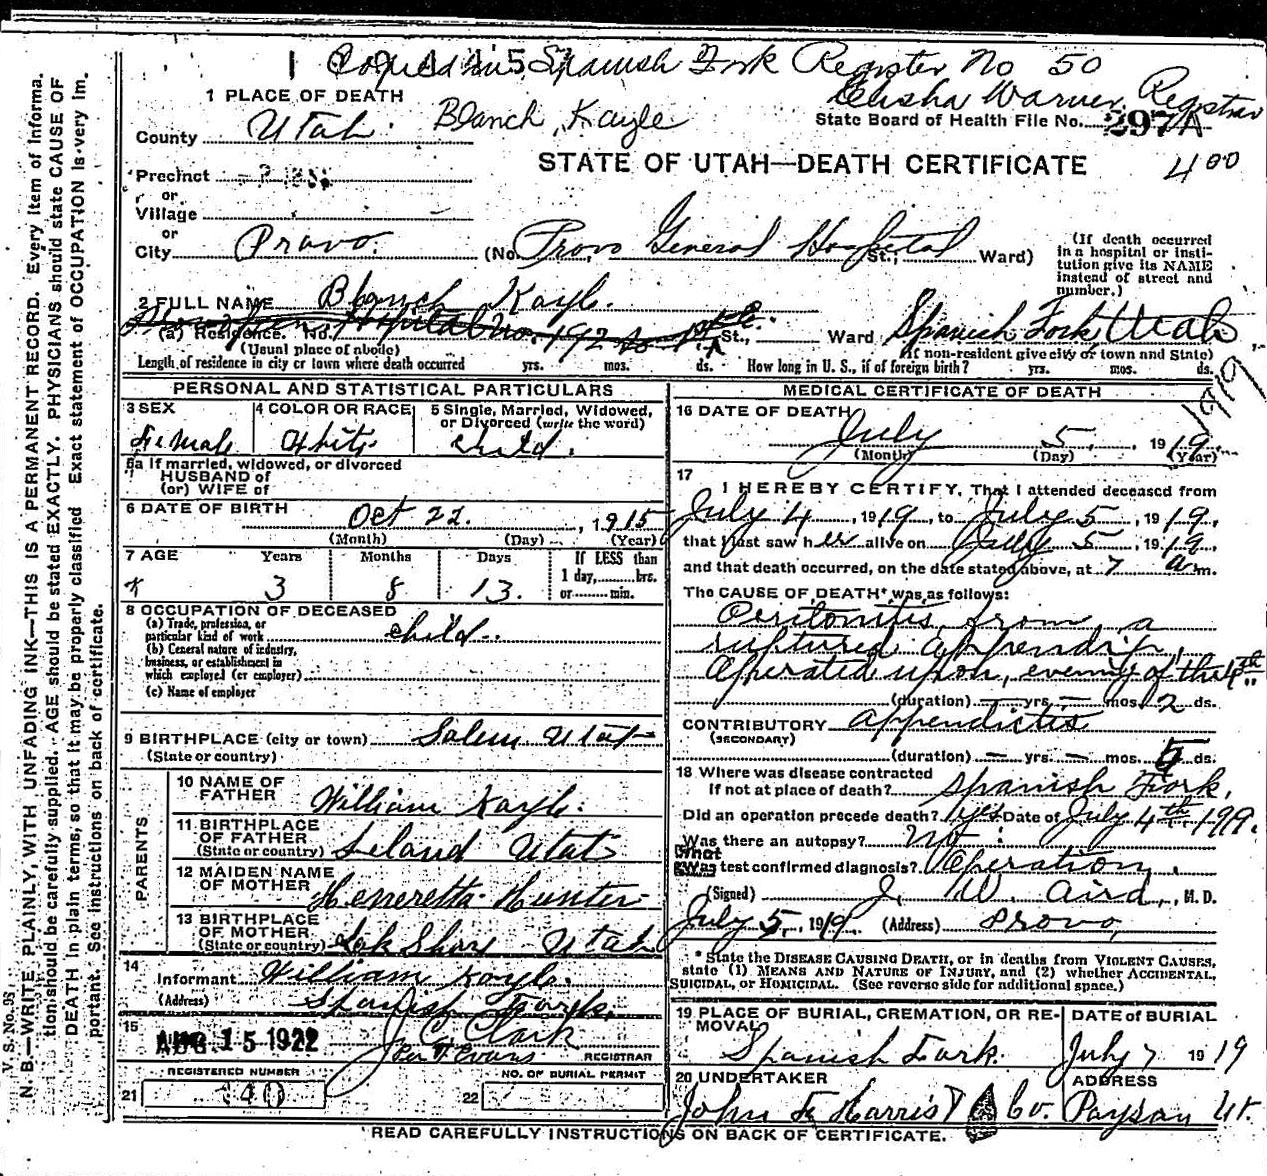 Copied in Spanish Fork Register No 50
Elisha Warner, Registrar
1 PLACE OF DEATH
Blanch, Kayle
County Utah.
State Board of Health File No. 297A
STATE OF UTAH—DEATH CERTIFICATE
400
Precinct
or
Village
or
City Provo. (No. Provo General Hospital St.; Ward)
(If death occurred in a hospital or institution give its NAME instead of street and number.)
2 FULL NAME Blanch Kayle.
(a) Residence. No. Hospital No. 192 St., Ward Spanish Fork, Utah
(Usual place of abode) (If non-resident give city or town and State)
Length of residence in city or town where death occurred yrs. mos. ds. How long in U. S., if of foreign birth? yrs. mos. ds.
1919
PERSONAL AND STATISTICAL PARTICULARS
3 SEX Female
4 COLOR OR RACE White
5 Single, Married, Widowed, or Divorced (write the word) child.
5a If married, widowed, or divorced
HUSBAND of
(or) WIFE of
6 DATE OF BIRTH Oct 22. , 1915
(Month) (Day) (Year)
7 AGE Years Months Days If LESS than
1 day, hrs.
or min.
3 8 13.
8 OCCUPATION OF DECEASED
(a) Trade, profession, or
particular kind of work child.
(b) General nature of industry,
business, or establishment in
which employed (or employer)
(c) Name of employer
9 BIRTHPLACE (city or town) Salem Utah
(State or country)
PARENTS
10 NAME OF
FATHER William Kayle.
11 BIRTHPLACE
OF FATHER
(State or country) Leland Utah
12 MAIDEN NAME
OF MOTHER Heneretta Hunter
13 BIRTHPLACE
OF MOTHER
(State or country) Lak Shore Utah
14
Informant William Kayle.
(Address) Spanish Fork.
15
AUG 15 1922 J. C. Clark
Evans REGISTRAR
REGISTERED NUMBER NO. OF BURIAL PERMIT
21 140 22
MEDICAL CERTIFICATE OF DEATH
16 DATE OF DEATH
July 5, 1919.
(Month) (Day) (Year)
17
I HEREBY CERTIFY, That I attended deceased from
July 4, 1919, to July 5, 1919,
that I last saw her alive on July 5, 1919,
and that death occurred, on the date stated above, at 7 a m.
The CAUSE OF DEATH* was as follows:
Peritonitis, from a
ruptured appendix,
Operated upon, evening of the 4th
(duration) — yrs. — mos. 2 ds.
CONTRIBUTORY appendictis
(SECONDARY)
(duration) — yrs. — mos. 5 ds.
18 Where was disease contracted
If not at place of death? Spanish Fork.
Did an operation precede death? yes Date of July 4th 1919.
Was there an autopsy? No
What test confirmed diagnosis? Operation.
(Signed) J. W. Aird, M. D.
July 5, 1919. (Address) Provo,
* State the DISEASE CAUSING DEATH, or in deaths from VIOLENT CAUSES,
state (1) MEANS AND NATURE OF INJURY, and (2) whether ACCIDENTAL,
SUICIDAL, or HOMICIDAL. (See reverse side for additional space.)
19 PLACE OF BURIAL, CREMATION, OR RE-
MOVAL Spanish Fork.
DATE OF BURIAL
July 7 1919
20 UNDERTAKER
John F Harris & Co.
ADDRESS
Payson Ut.
READ CAREFULLY INSTRUCTIONS ON BACK OF CERTIFICATE.
V. S. No. 98
N. B.—WRITE PLAINLY, WITH UNFADING INK—THIS IS A PERMANENT RECORD. Every item of informa-
tion should be carefully supplied. AGE should be stated EXACTLY. PHYSICIANS should state CAUSE OF
DEATH in plain terms, so that it may be properly classified. Exact statement of OCCUPATION is very im-
portant. See instructions on back of certificate.